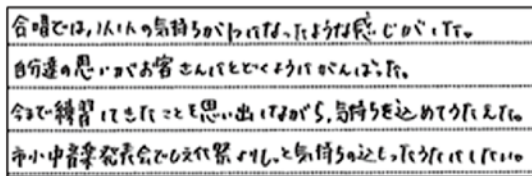 合唱では,1人1人の気持ちが1つになったような感じがした。
自分達の思いがお客さんにとどくようにがんばった。
今まで練習してきたことを思い出しながら,気持ちを込めてうたえた。
市小中音楽発表会でも文化祭よりもっと気持ちの込もったうたにしたい。